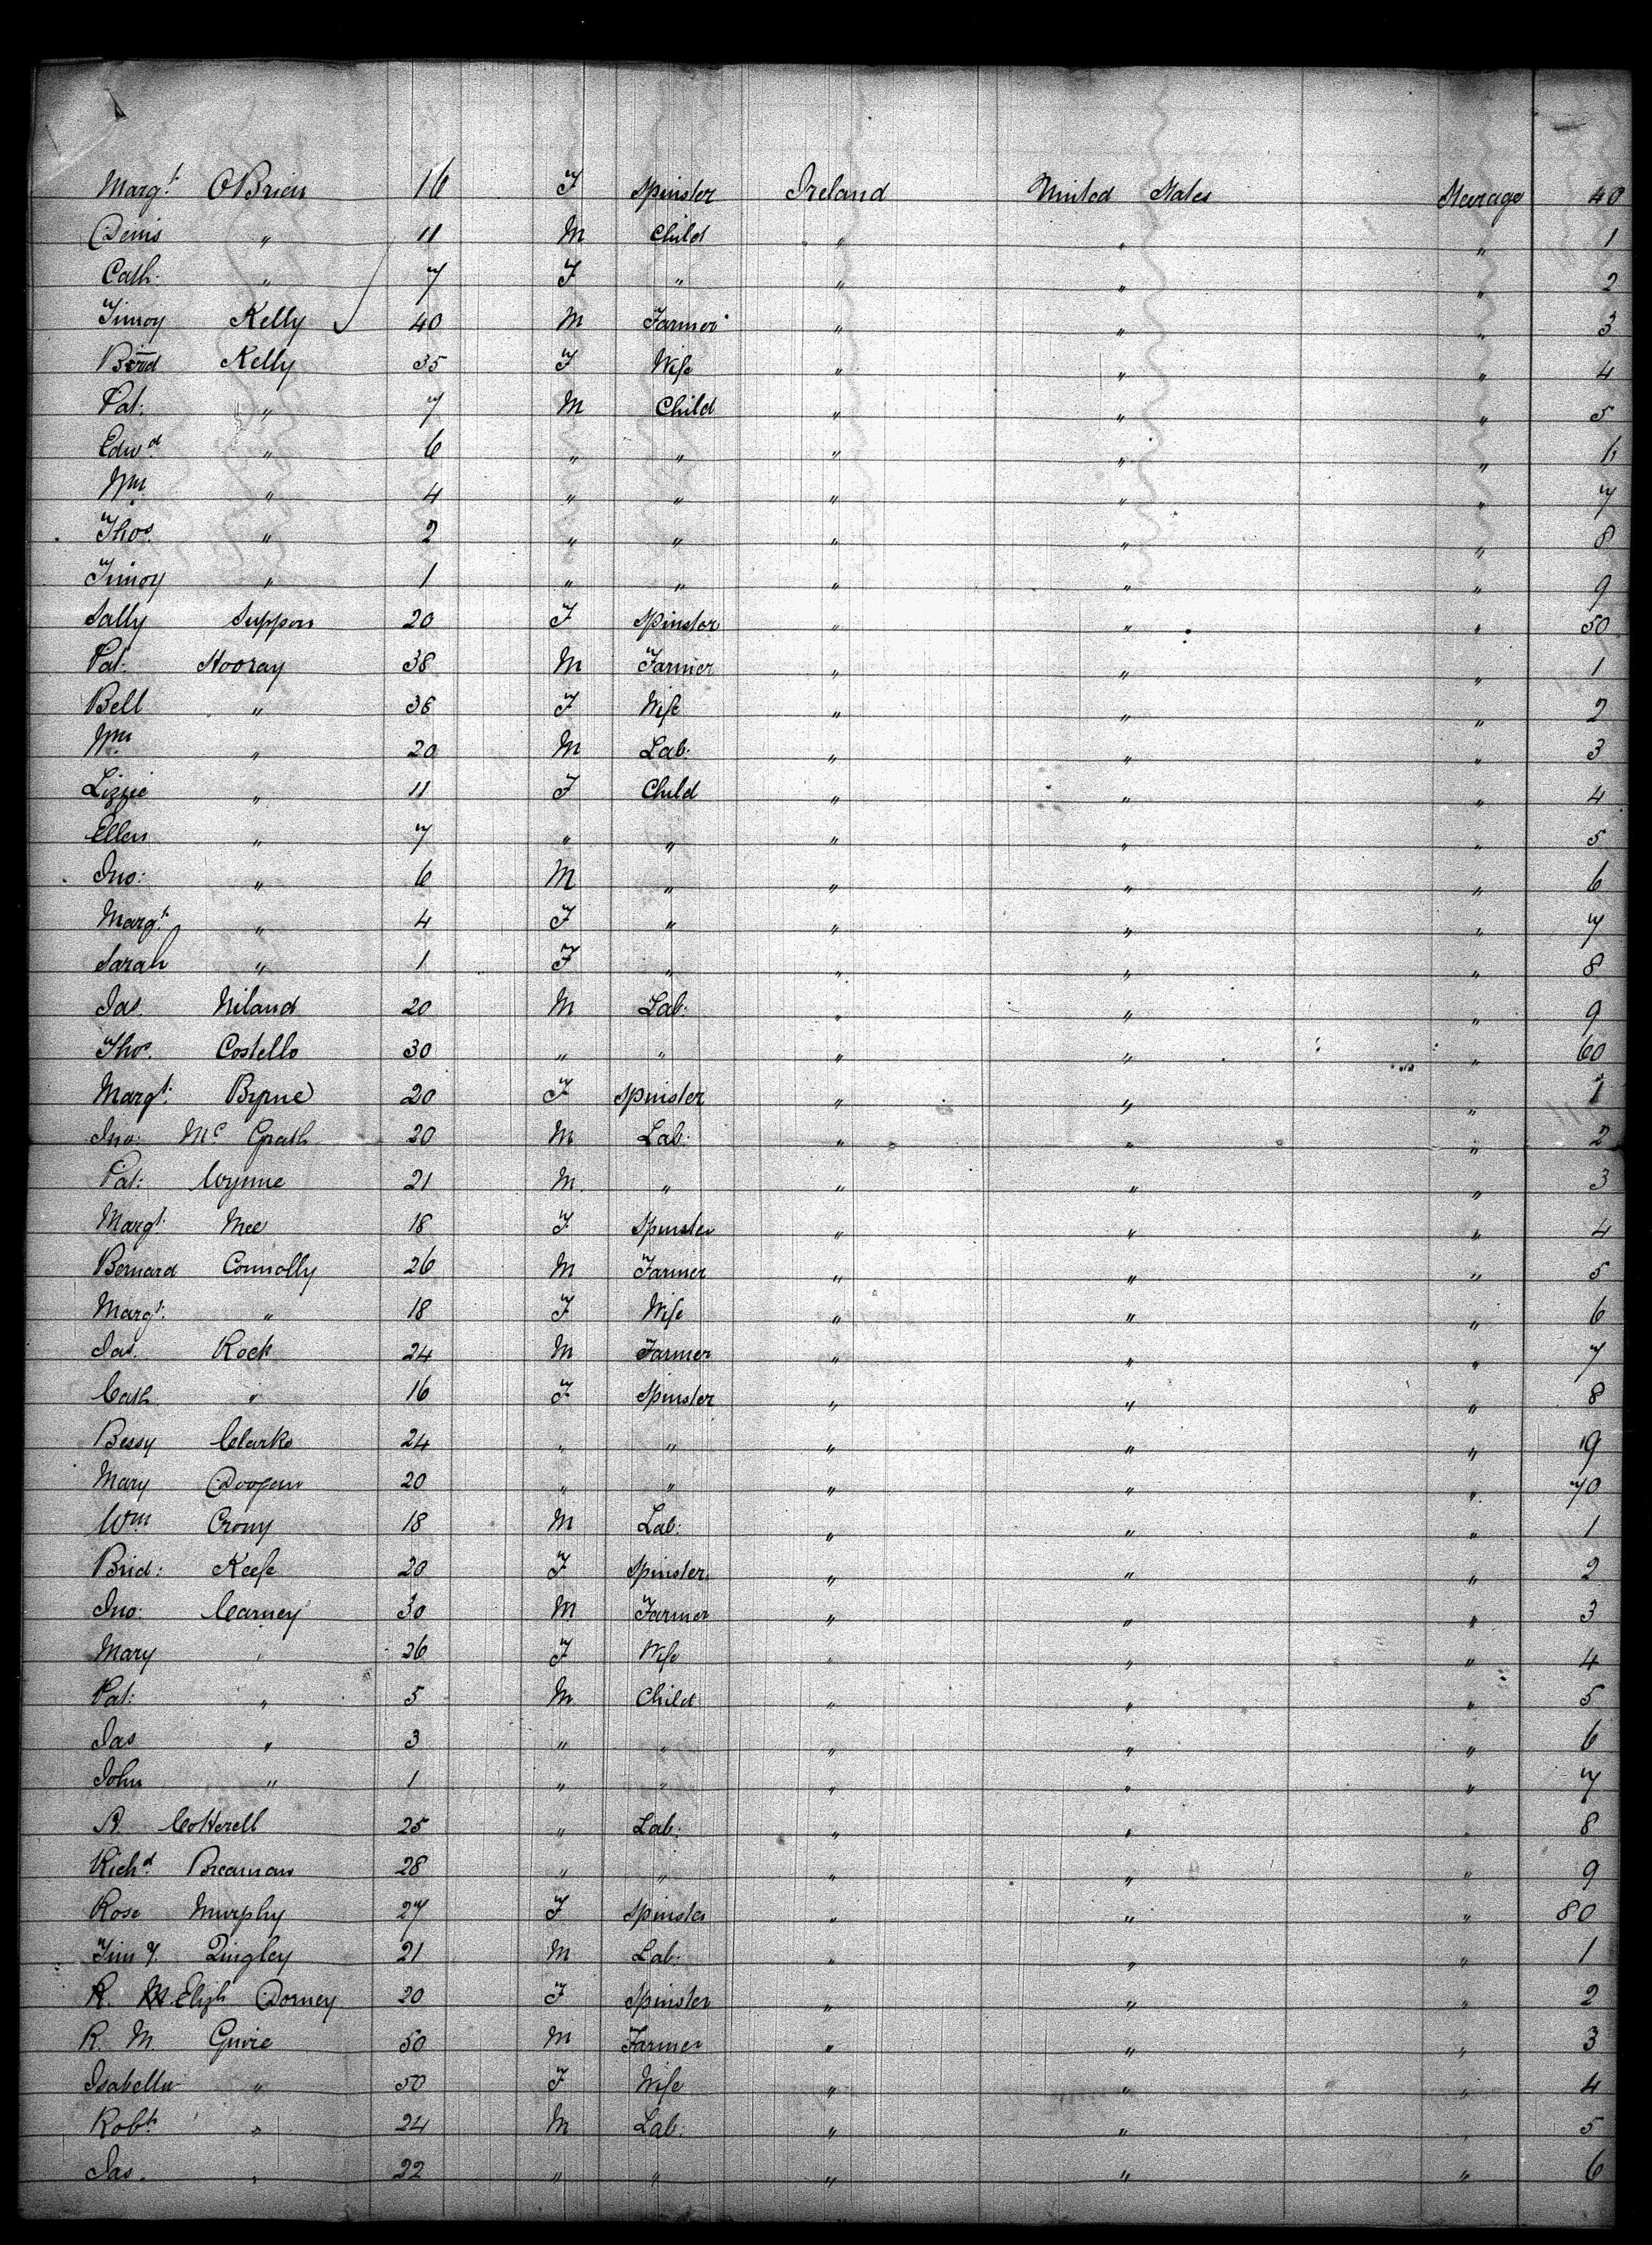 Margt. OBrien 16 F Spinster Ireland United States Steerage 40
Denis " 11 M Child " " " 1
Cath: " 7 F " " " " 2
Timoy Kelly 40 M Farmer " " " 3
Brid Kelly 35 F Wife " " " 4
Pat: " 7 M Child " " " 5
Edwd " 6 " " " " " 6
Wm " 4 " " " " " 7
Thos. " 2 " " " " " 8
Timoy " 1 " " " " " 9
Sally Suppon 20 F Spinster " " " 50
Pat: Hooray 38 M Farmer " " " 1
Bell " 36 F Wife " " " 2
Wm " 20 M Lab: " " " 3
Lizzie " 11 F Child " " " 4
Ellen " 7 " " " " " 5
Jno: " 6 M " " " " 6
Margt. " 4 F " " " " 7
Sarah " 1 F " " " " 8
Jas. Niland 20 M Lab: " " " 9
Thos. Costello 30 " " " " " 60
Margt: Byrne 20 F Spinster " " " 1
Jno: Mc Grath 20 M Lab: " " " 2
Pat: Wynne 21 M. " " " " 3
Margt: Mee 18 F Spinster " " " 4
Bernard Connolly 26 M Farmer " " " 5
Margt: " 18 F Wife " " " 6
Jas. Rock 24 M Farmer " " " 7
Cath. " 16 F Spinster " " " 8
Bessy Clarke 24 " " " " " 9
Mary Doogan 20 " " " " " 70
Wm Crony 18 M Lab: " " " 1
Brid: Keefe 20 F Spinster " " " 2
Jno: Carney 30 M Farmer " " " 3
Mary " 26 F Wife " " " 4
Pat: " 5 M Child " " " 5
Jas " 3 " " " " " 6
John " 1 " " " " " 7
Cotterell 25 " Lab: " " " 8
Richd. Brennan 28 " " " " " 9
Rose Murphy 27 F Spinster " " " 80
Tim Y. Dingley 21 M Lab: " " " 1
R. Eliz Dorney 20 F Spinster " " " 2
R. M. Guire 50 M Farmer " " " 3
Isabella " 50 F Wife " " " 4
Robt. " 24 M Lab: " " " 5
Jas. " 22 " " " " " 6